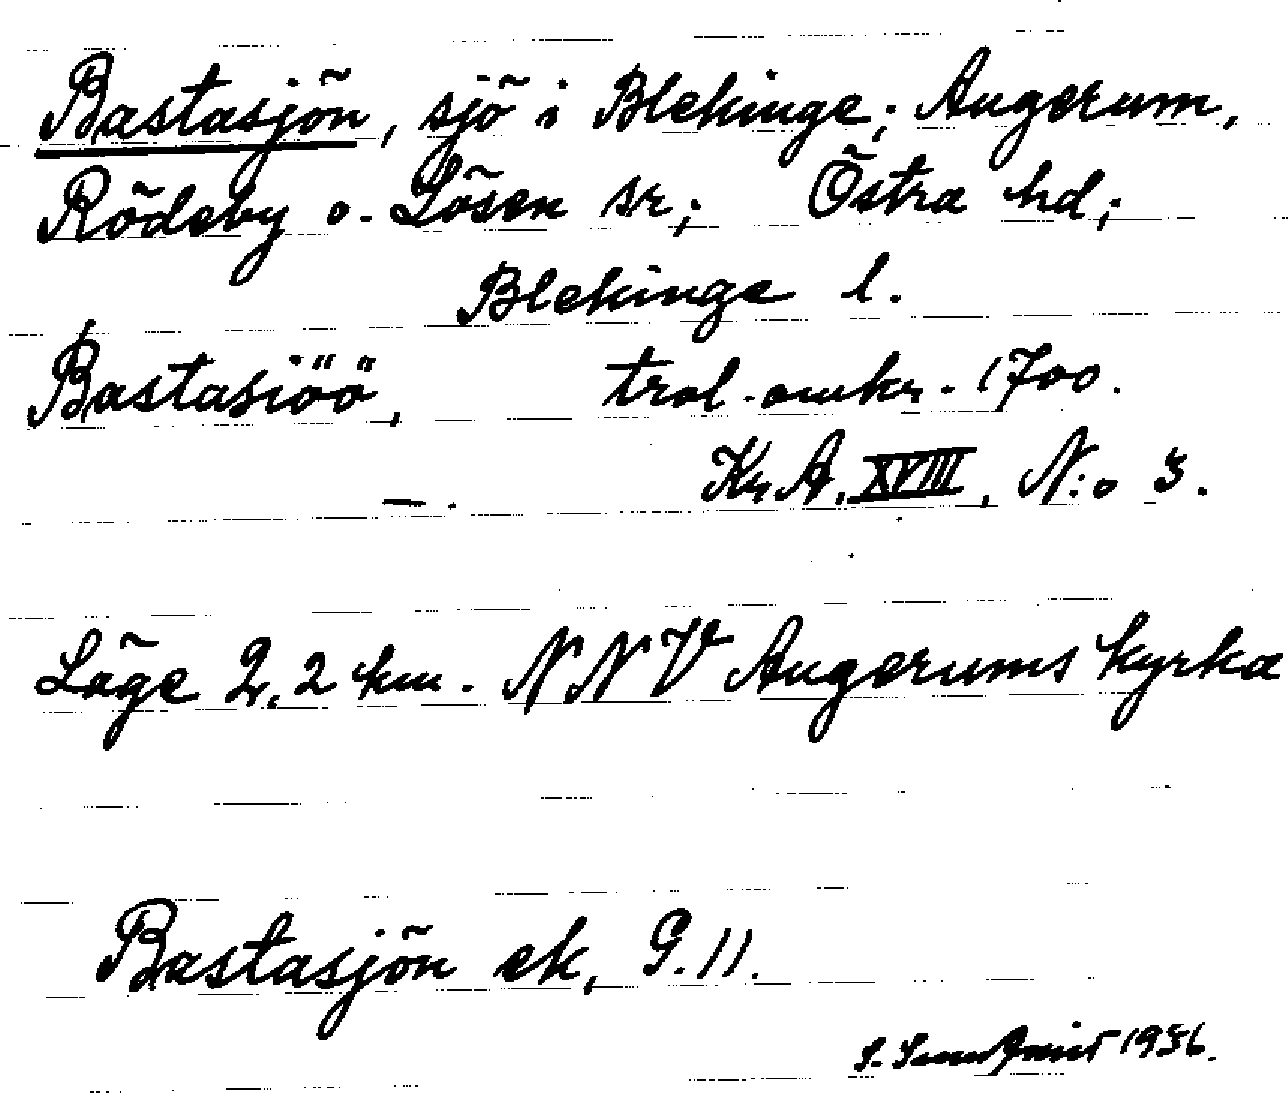 Bastasjön, sjö i Blekinge; Augerum,
Rödeby o. Lösen sr; Östra hd;
Blekinge l.
Bastasiöö, trol. omkr. 1700.
— . Kr A. XVIII, N:o 3.
Läge 2,2 km. NNV Augerums kyrka
Bastasjön ek, 9.11.
S. 1936.